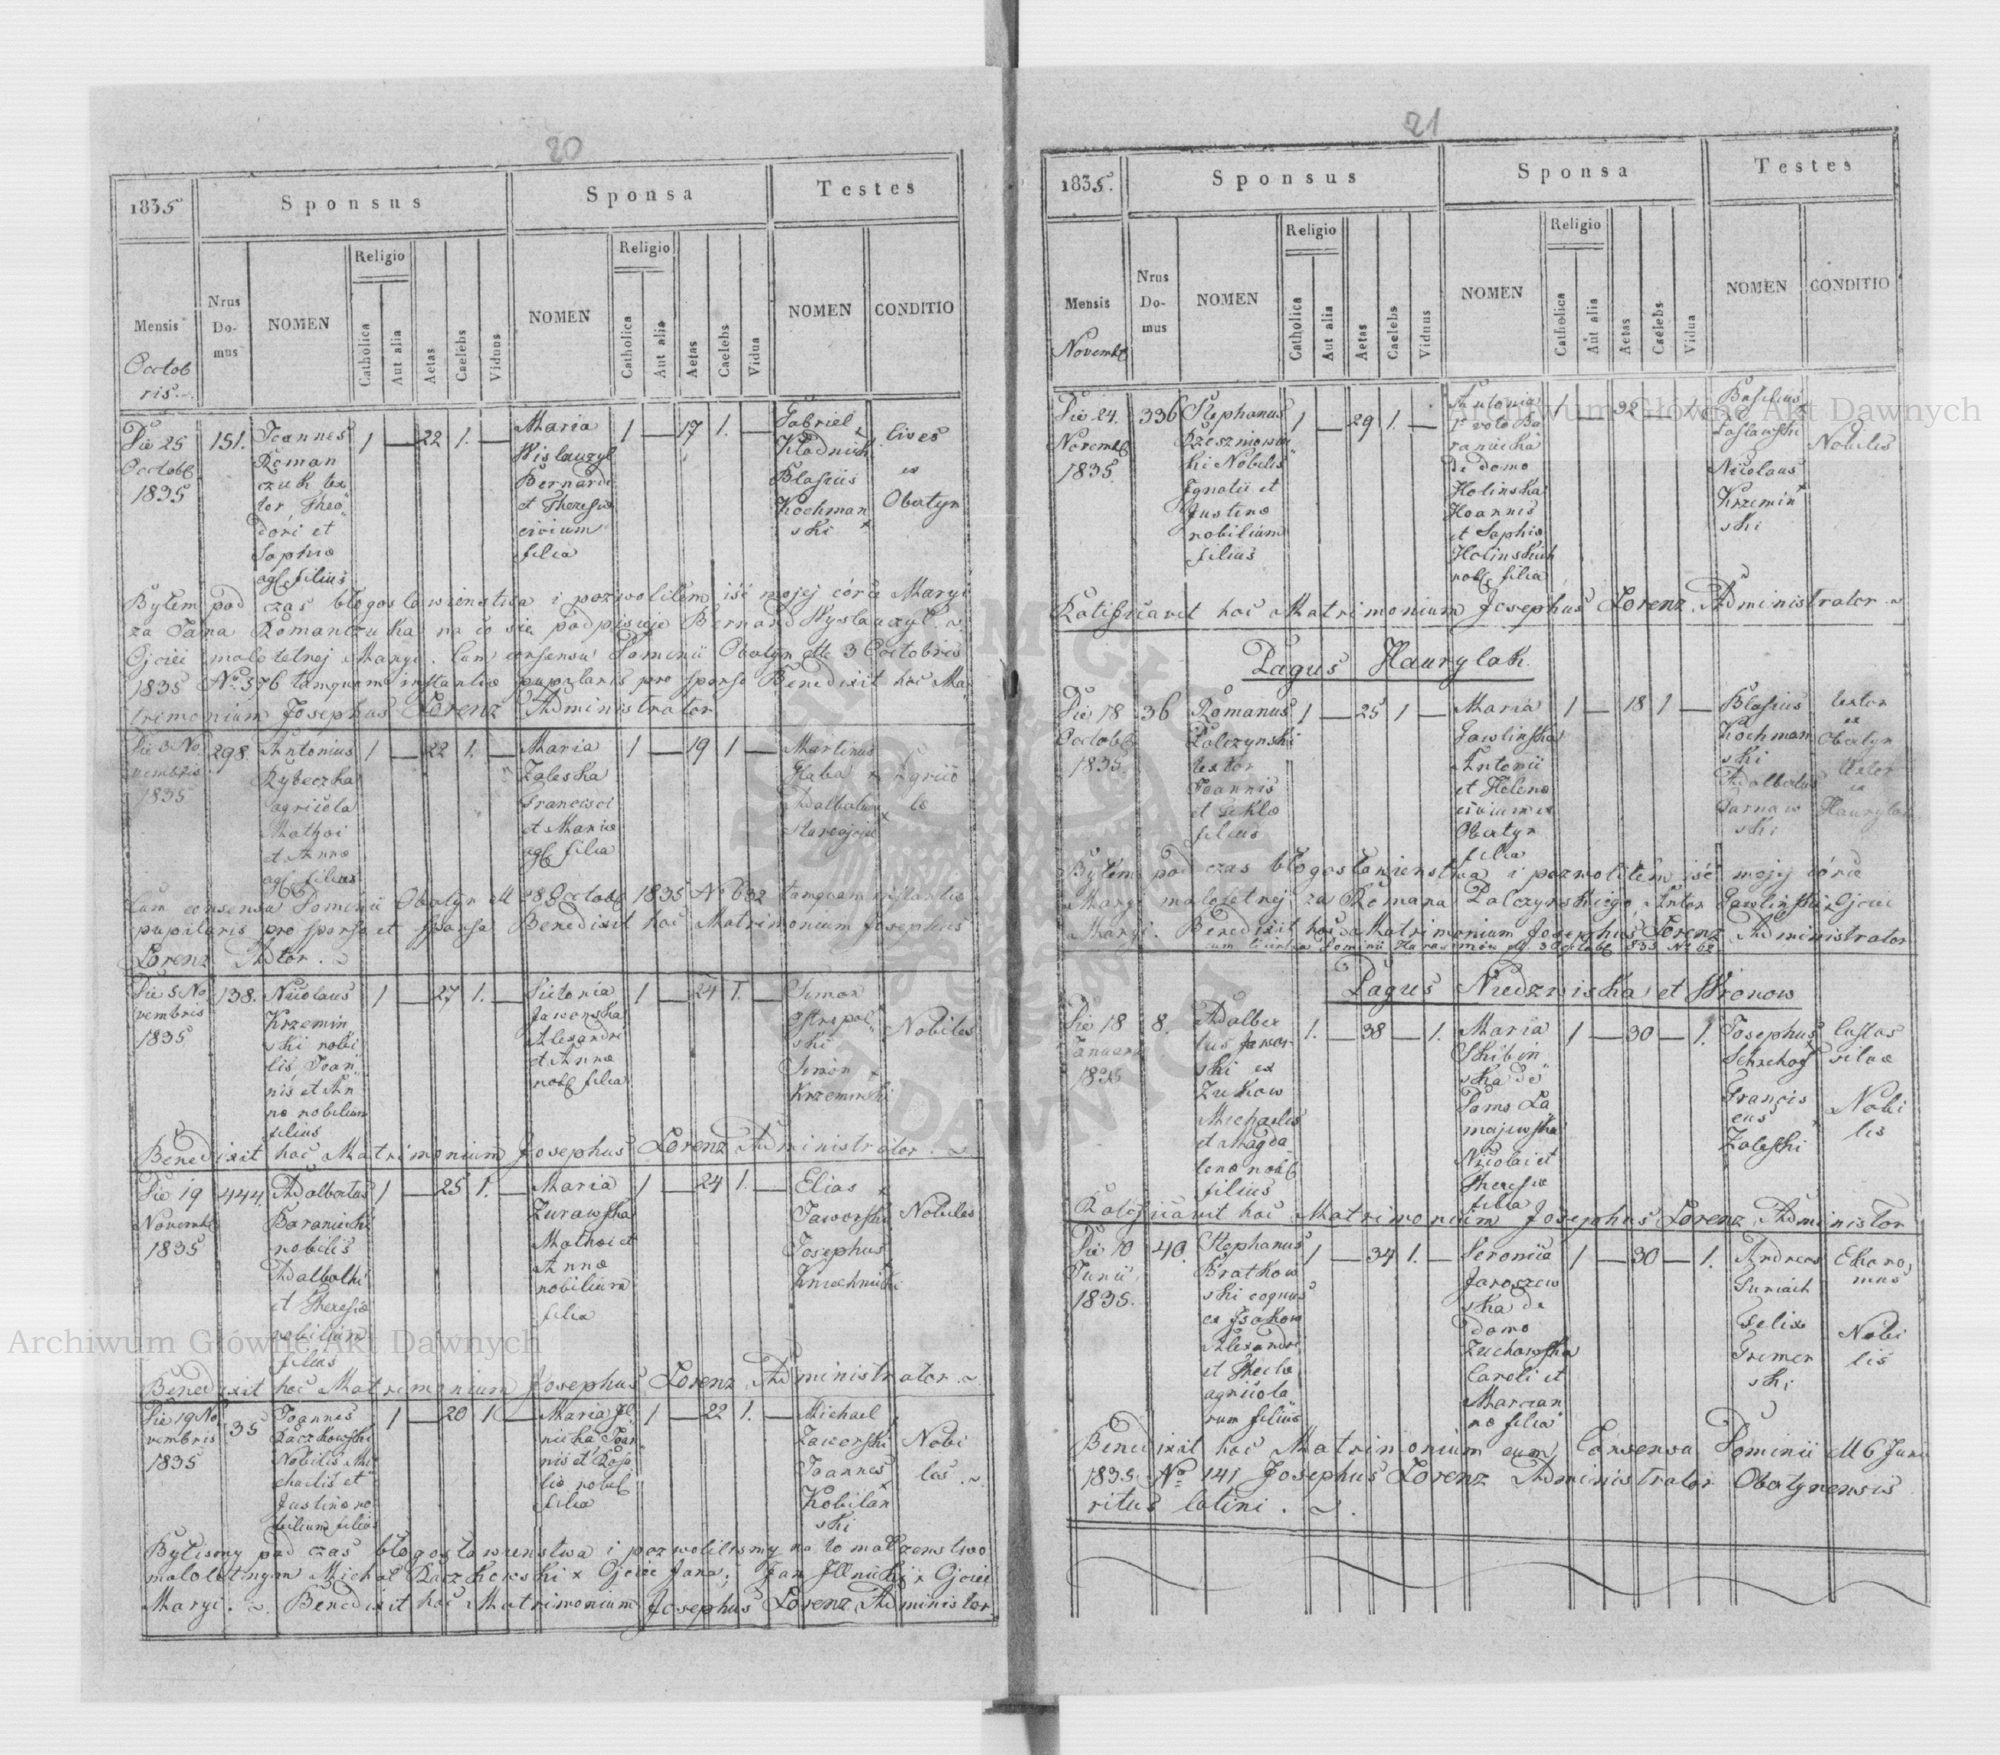 20
1835
Sponsus
Sponsa
Testes
Mensis
Octob
ris.
Nrus
Do-
mus
NOMEN
Religio
Catholica
Aut alia
Aetas
Caelebs
Viduus
NOMEN
Religio
Catholica
Aut alia
Aetas
Caelebs
Vidua
NOMEN
CONDITIO
Die 25
1835
151.
Joannes
Roman
czuk tex
tor Theo
dori et
Sophiæ
filius
1 — 22 1. —
Maria
Bernardi
et Theresiæ
civium
filia
1 — 17 1. —
Gabriel
Blasius
Kochman
ski
Cives
ex
Obertyn
Byłem pod czas błogosławienstwa i pozwoliłem iść mojej córce Maryi
za Jana Romanczuka na co się podpisuje Bernard
Ojciec małoletnej Maryi. Cum consensu Dominii Obertyn dtto 3 Octobris
1835 No 576 tamquam instantiæ pupilaris pro sponso Benedixit hoc Ma
trimonium Josephus Lorenz Administrator
Die 3 No
vembris
1835
298.
Antonius
Rybeczka
agricola
Mathæi
et Annæ
filius
1 — 22 1. —
Maria
Zaleska
Francisci
et Mariæ
filia
1 — 19 1 —
Martinus
Agrico
læ
Cum consensu Dominii Obertyn 28 1835 No 632 tamquam instantiæ
pupilaris pro sponso et sponsa Benedixit hoc Matrimonium Josephus
Lorenz
Die 5 No
vembris
1835
138.
Nicolaus
Krzemin
ski nobi
lis Joan
nis et An
næ nobilium
filius
1 — 27 1. —
Victoria
Jaworska
Alexandri
et Annæ
filia
1 — 24 1. —
Simon
Ostropol
ski
Simon
Krzeminski
Nobiles
Benedixit hoc Matrimonium Josephus Lorenz Administrator.
Die 19
1835
444.
Adalbertus
Baraniecki
nobilis
Adalberti
et Theresiæ
nobilium
filius
1 — 25 1. —
Maria
Zurawska
Mathæi et
Annæ
nobilium
filia
1 — 24 1. —
Elias
Jaworski
Josephus
Nobiles
Benedixit hoc Matrimonium Josephus Lorenz Administrator.
Die 19 No
vembris
1835
35
Joannes
Raczkowski
Nobilis Mi
chaelis et
Justinæ no
bilium filius
1 — 20 1 —
Maria Jl
nicka Joan
nis et Rosa
liæ
filia
1 — 22 1. —
Michael
Jaworski
Joannes
Kobilan
ski
Nobi
les
Bylismy pod czas błogosławienstwa i pozwolilismy na to małzenstwo
małoletnym Michał Raczkowski x Ojciec Jana, Jan Illnicki x Ojciec
Maryi. Benedixit hoc Matrimonium Josephus Lorenz Administor
21
1835.
Sponsus
Sponsa
Testes
Mensis
Nrus
Do-
mus
NOMEN
Religio
Catholica
Aut alia
Aetas
Caelebs
Viduus
NOMEN
Religio
Catholica
Aut alia
Aetas
Caelebs
Vidua
NOMEN
CONDITIO
Die 24.
1835
336
Stephanus
Nobilis
Ignatii et
Justinæ
nobilium
filius
1 — 29 1. —
Antonia
1o voto Ba
raniecka
de domo
Holinska
Joannis
et Sophiæ
Holinskich
filia
Basilius
Nicolaus
Krzemin
ski
Nobiles
Ratificavit hoc Matrimonium Josephus Lorenz Administrator
Pagus Haurylak.
Die 18
1835.
36
Romanus
Palczynski
textor
Joannis
et Teklæ
filius
1 — 25 1 —
Maria
Gawlinska
Antonii
et Helenæ
civium ex
Obertyn
filia
1 — 18 1 —
Blasius
Kochman
ski
Adalbertus
Tarnaw
ski
textor
ex
Obertyn
textor
ex
Byłem pod czas błogosławienstwa i pozwoliłem iść mojej córce
Maryi małoletnej za Romana Palczynskiego, Antoni Gawlinski x Ojciec
Maryi. Benedixit hoc Matrimonium Josephus Lorenz Administrator
Pagus Niedzwiska et Wronow
Die 18
Januarii
1835
8.
Adalber
tus Jawor
ski ex
Zukow
Michaelis
et Magda
lenæ
filius
1. — 38 — 1.
Maria
Skibin
ska de
Domo
Nicolai et
Theresiæ
filia
1 — 30 — 1.
Josephus
Francis
cus
Zaleski
Custos
silvæ
Nobi
lis
Ratificavit hoc Matrimonium Josephus Lorenz Administor
Die 10
Junii
1835.
40.
Stephanus
Bratkow
ski coquus
ex Isakow
Alexandri
et Theclæ
agricola
rum filius
1 — 34 1. —
Veronica
Jaroszew
ska de
domo
Zuchowska
Caroli et
Marcian
næ filia
1 — 30 — 1.
Andreas
Felix
Ekono,
mus
Nobi
lis
Benedixit hoc Matrimonium cum Consensu Dominii 6 Junii
1835 No 141 Josephus Lorenz Administrator Obertynensis
ritus latini.
Archiwum Główne Akt Dawnych
Archiwum Główne Akt Dawnych